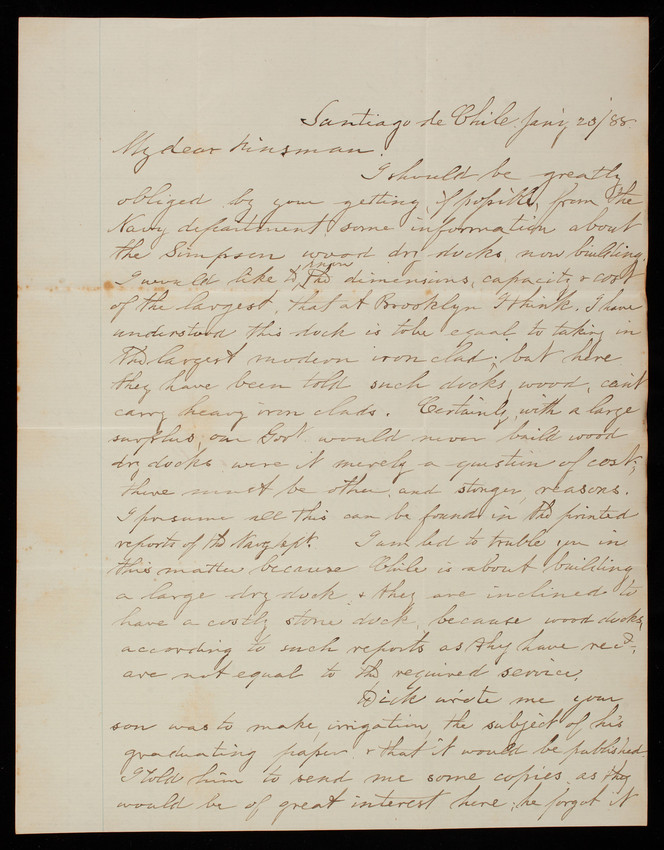 Santiago de Chile Jan'y 23/88
My dear Kinsman.
I should be greatly
obliged by your getting, if possible, from the
Navy department some information about
the Simpson wood dry docks now building.
I would like to know the dimensions, capacity & cost
of the largest, that at Brooklyn I think. I have
understood this dock is to be equal to taking in
the largest modern iron clad; but here
they have been told such docks, wood, can't
carry heavy iron clads. Certainly, with a large
surplus, our Gov't would never build wood
dry docks were it merely a question of cost;
there must be other, and stonger, reasons.
I presume all this can be found in the printed
reports of the Navy Dept. I am led to truble you in
this matter because Chile is about building
a large dry dock & they are inclined to
have a costly stone dock, because wood docks,
according to such reports as they have rec'd,
are not equal to the required service.
Dick wrote me your
son was to make irrigation the subject of his
graduating paper & that it would be published.
I told him to send me some copies as they
would be of great interest here; he forgot it